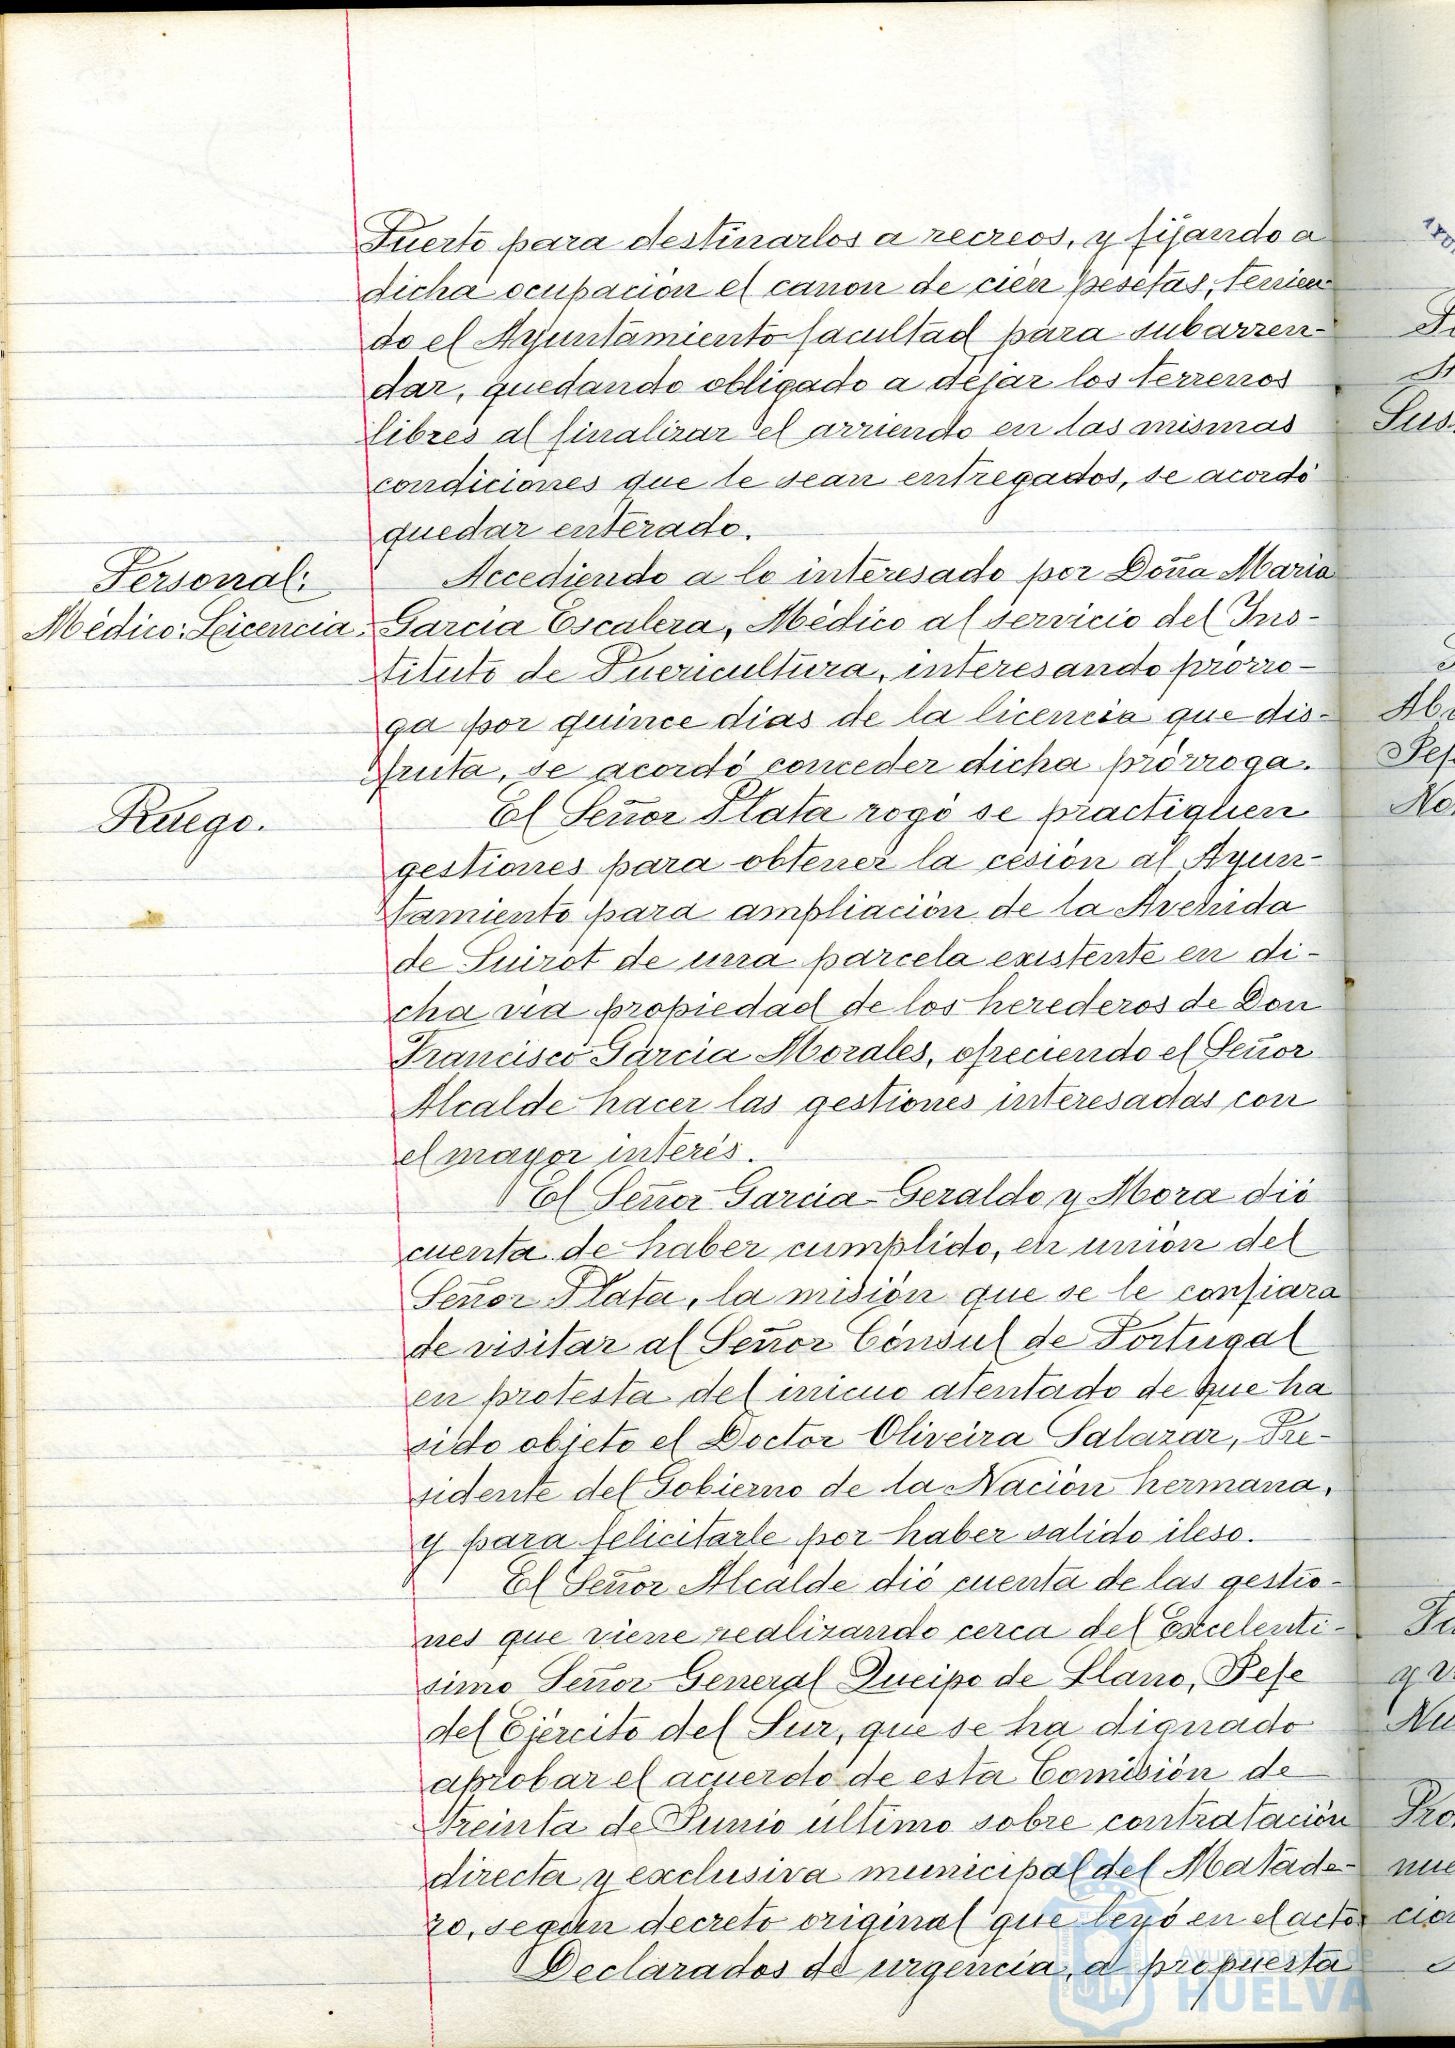 Puerto para destinarlos a recreos, y fijando a
dicha ocupación el canon de cien pesetas, tenien
do el Ayuntamiento facultad para subarren-
dar, quedando obligado a dejar los terrenos
libres al finalizar el arriendo en las mismas
condiciones que le sean entregados, se acordó
quedar enterado.
Personal:
Médico: Licencia.
Accediendo a lo interesado por Doña Maria
Garcia Escalera, Médico al servicio del Ins-
tituto de Puericultura, interesando prórro-
ga por quince dias de la licencia que dis-
fruta, se acordó conceder dicha prórroga.
Ruego.
El Señor Plata rogó se practiquen
gestiones para obtener la cesión al Ayun-
tamiento para ampliación de la Avenida
de Guirot de una parcela existente en di-
cha via propiedad de los herederos de Don
Francisco Garcia Morales, ofreciendo el Señor
Alcalde hacer las gestiones interesadas con
el mayor interés.
El Señor Garcia-Geraldo y Mora dió
cuenta de haber cumplido, en unión del
Señor Plata, la misión que se le confiara
de visitar al Señor Cónsul de Portugal
en protesta del inicuo atentado de que ha
sido objeto el Doctor Oliveira Salazar, Pre-
sidente del Gobierno de la Nación hermana,
y para felicitarle por haber salido ileso.
El Señor Alcalde dió cuenta de las gestio-
nes que viene realizando cerca del Excelenti-
simo Señor General Queipo de Llano, Jefe
del Ejército del Sur, que se ha dignado
aprobar el acuerdo de esta Comisión de
treinta de Junio último sobre contratación
directa y exclusiva municipal del Matade-
ro, según decreto original que leyó en el acto.
Declarados de urgencia, a propuesta
Ayuntamiento de
HUELVA